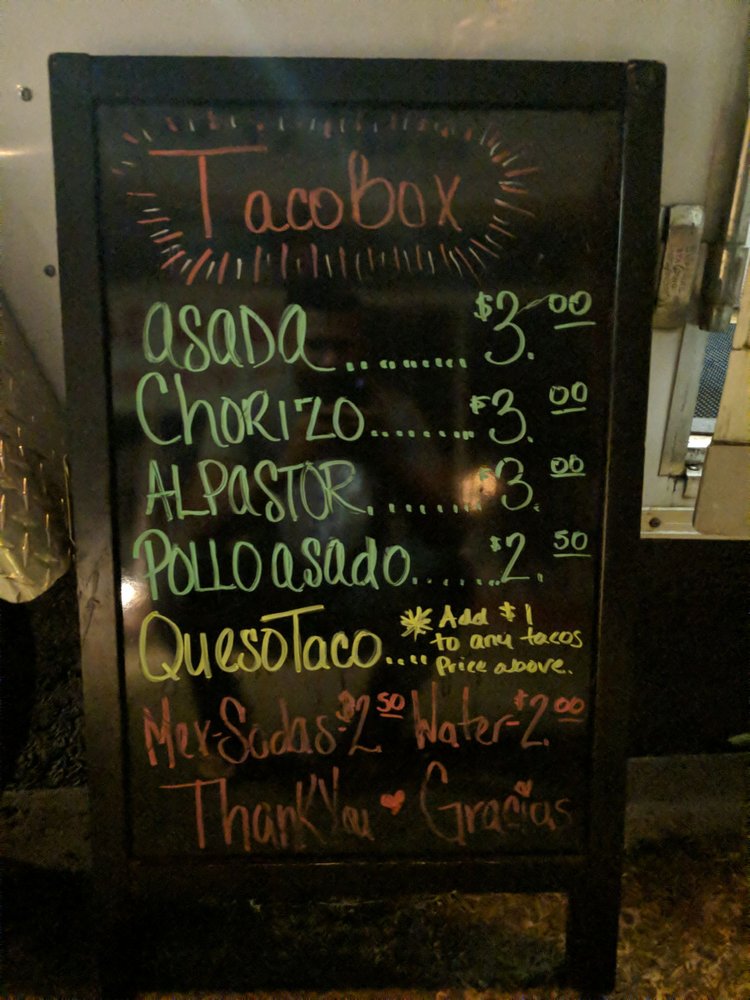 TacoBox
asada ......... $3.00
Chorizo ........ $3.00
AL Pastor ........ $3.00
Pollo asado ....... $2.50
Queso Taco .... * Add $1
to any tacos
Price above.
Mex-Sodas-$2.50 Water-$2.00
Thank You ♥ Gracias